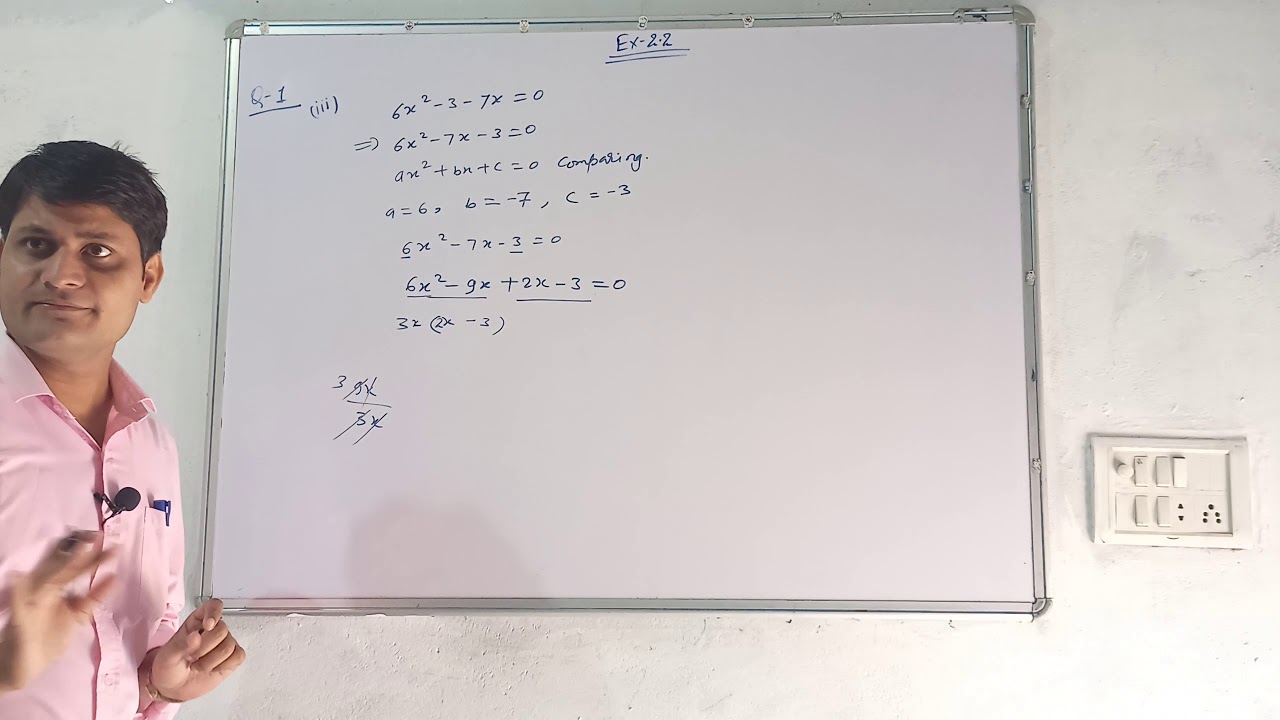 Ex-2.2
Q-1 (iii) 6x² - 3 - 7x = 0
=> 6x² - 7x - 3 = 0
ax² + bx + c = 0 Comparing.
a = 6, b = -7, c = -3
6x² - 7x - 3 = 0
6x² - 9x + 2x - 3 = 0
3x (2x - 3)
3 9x
3x